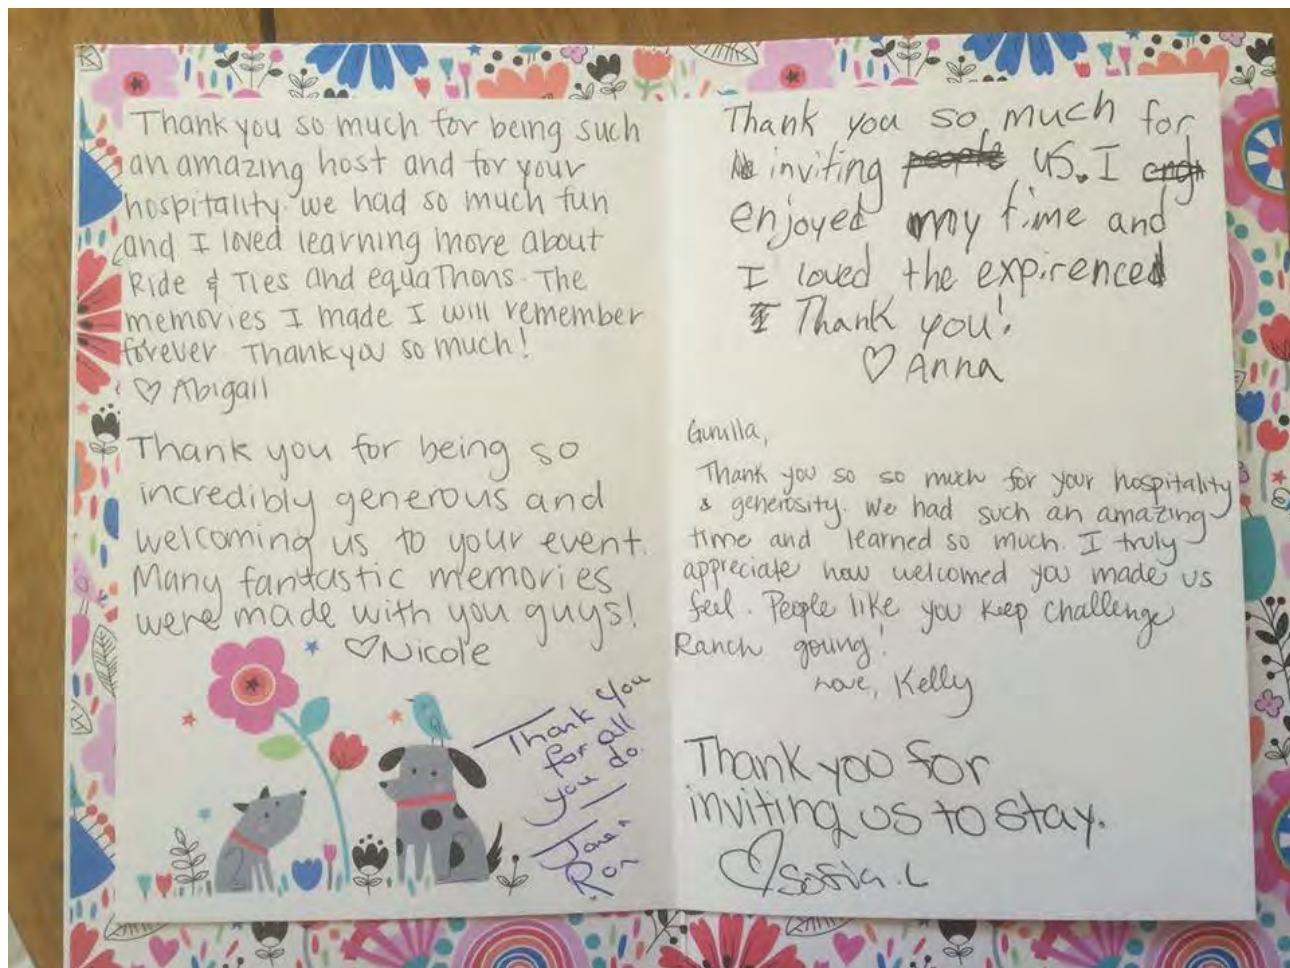 Thank you so much for being such
an amazing host and for your
hospitality. we had so much fun
and I loved learning more about
Ride & Ties and equathons. The
memories I made I will remember
forever. Thank you so much!
♡ Abigail
Thank you for being so
incredibly generous and
welcoming us to your event.
Many fantastic memories
were made with you guys!
♡Nicole
Thank You
for all
you do.
Ron
Thank you so much for
inviting people us. I
enjoyed my time and
I loved the expirenced
Thank you!
♡ Anna
Thank you so so much for your hospitality
& generosity. We had such an amazing
time and learned so much. I truly
appreciate how welcomed you made us
feel. People like you keep challenge
Ranch going!
Love, Kelly
Thank you for
inviting us to stay.
♡Sofia.L